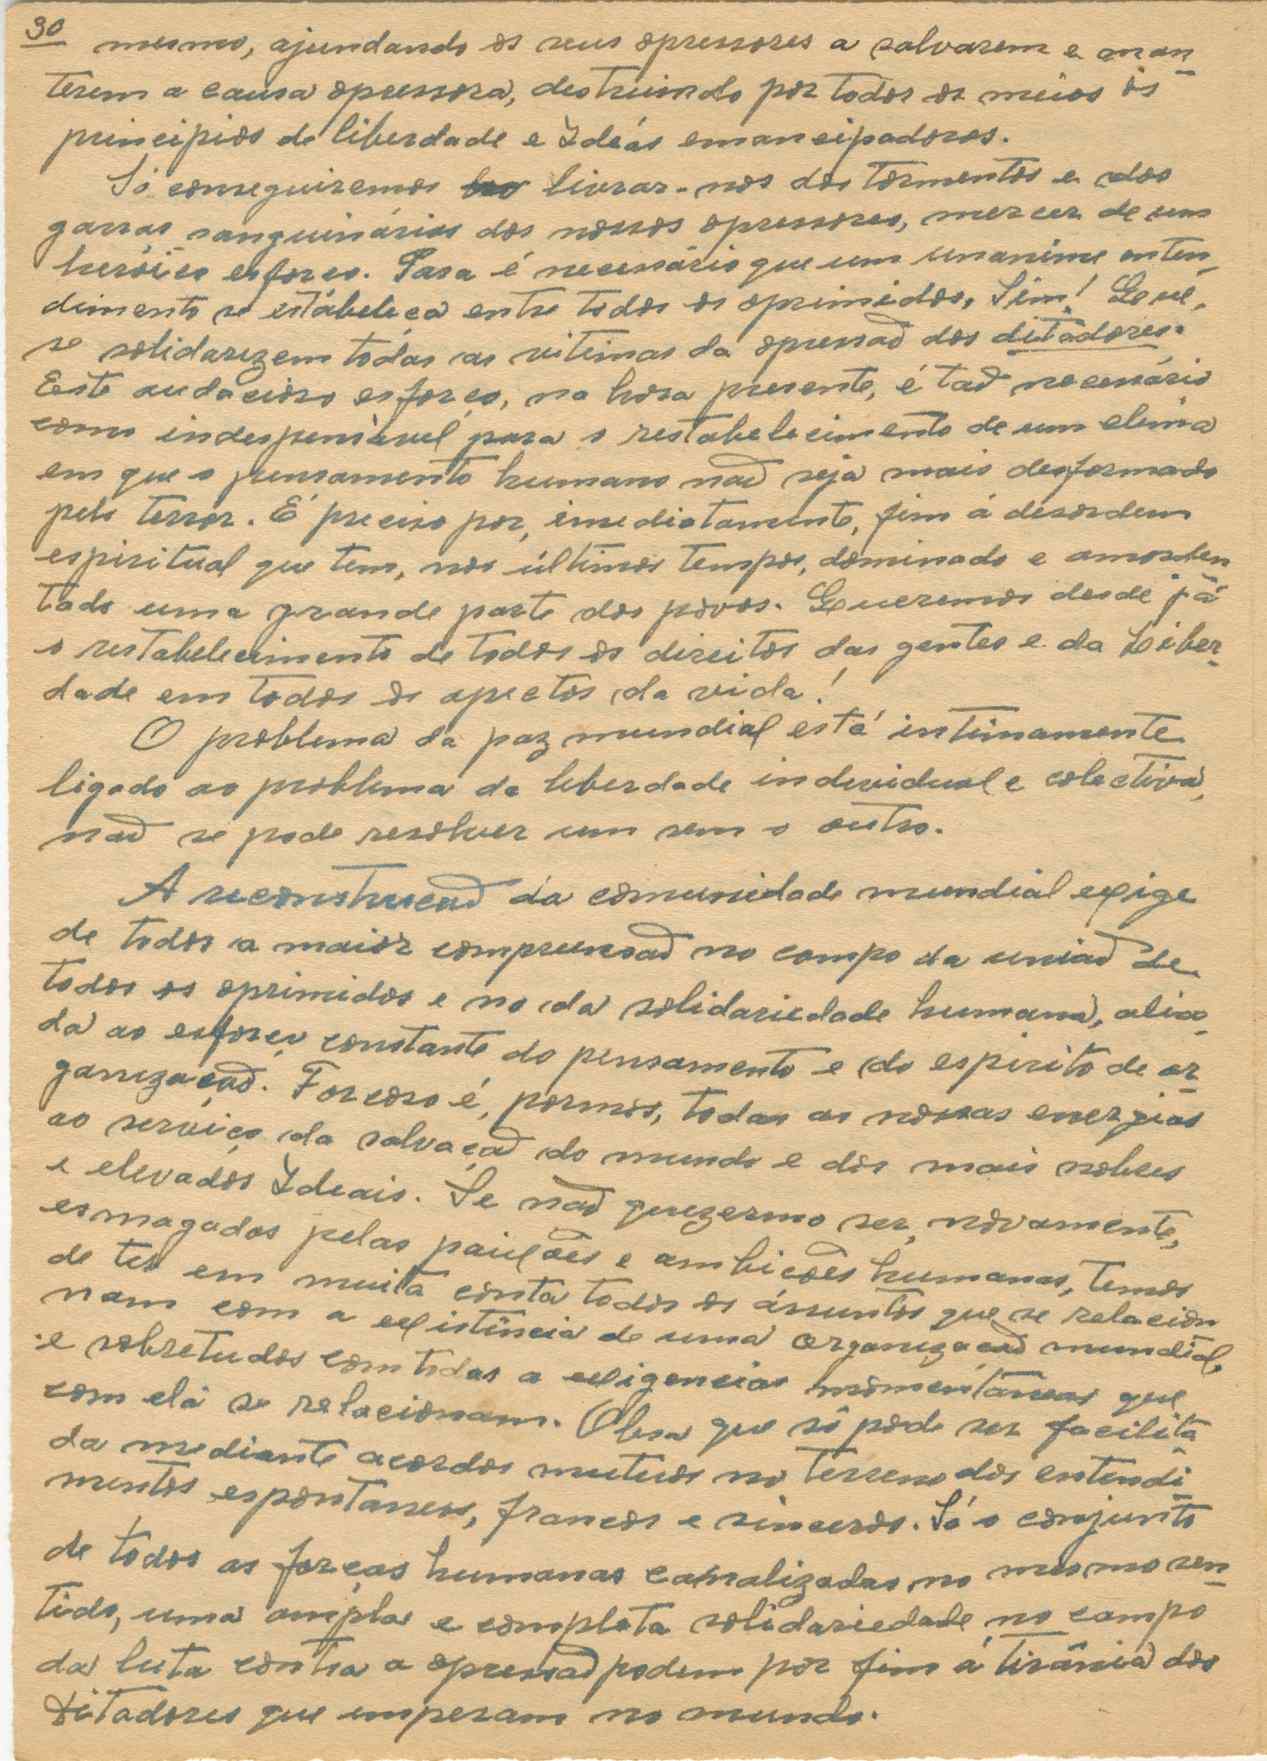 30
mesmo, ajundando os seus opressores a salvarem e man
terem a causa opressora, destruindo por todos os meios os
principios de liberdade e Ideás emancipadoras.
Só conseguiremos livrar-nos dos tormentos e das
garras sanguinárias dos nossos opressores, mercer de um
heróico esforço. Para é necessário que um unanime enten
dimento se estabeleça entre todos os oprimidos. Sim! Que
se solidarizem todas as vitimas da opressaõ dos ditadores.
Este audacioso esforço, na hora presente, é taõ necessário
como indespensàvel para o restabelecimento de um clima
em que o pensamento humano naõ seja mais desformado
pelo terror. É preciso por, imediatamente, fim á desordem
espiritual que tem, nos últimos tempos, dominado e amorden
tado uma grande parte dos povos. Queremos desde já
o restabelecimento de todos os direitos das gentes e da Liber-
dade em todos os apectos da vida!
O problema da paz mundial está intimamente
ligado ao problema da liberdade individual e colectiva,
naõ se pode resolver um sem o outro.
A reconstrucaõ da comunidade mundial exige
de todos a maior compreensaõ no campo da uniaõ de
todos os oprimidos e no da solidariedade humana, alia-
da ao esforço constante do pensamento e do espirito de or
ganizaçaõ. Forçoso é, pormos, todas as nossas energias
ao serviço da salvaçaõ do mundo e dos mais nobres
e elevados Ideais. Se naõ quezermo ser, novamente,
esmagados pelas paixões e ambicões humanas, temos
de ter em muita conta todos os assuntos que se relacion
nam com a existência de uma organizaçaõ mundial,
e sobretudos com todas a exigencias momentâneas que
com ela se relacionam. Obra que só pode ser facilita
da mediante acordos mutuos no terreno dos entendi
mentos espontaneos, francos e sinceros. Só o conjunto
de todos as forças humanas canalizadas no mesmo sen
tido, uma ampla e completa solidariedade no campo
da luta contra a opressaõ podem por fim á tirânia dos
Ditadores que emperam no mundo.